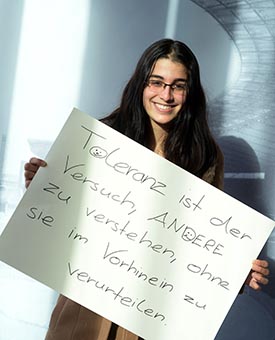 Toleranz ist der
Versuch, ANDERE
zu verstehen, ohne
sie im Vorhinein zu
verurteilen.